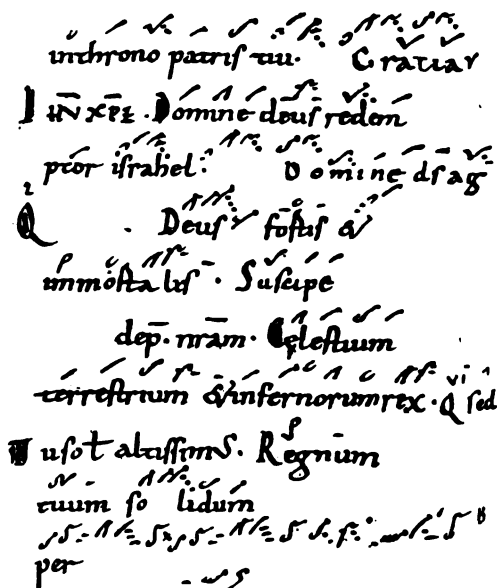 inthrono patris tui. Gratiar
I IN XPE. Domine deus redem
ptor israhel. Domine ds ag
Q Deus fortis &
immortalis. Suscipe
dep. nram. Celestium
terrestrium & infernorum rex. Q sed
altissimus. Regnum
tuum solidum
per